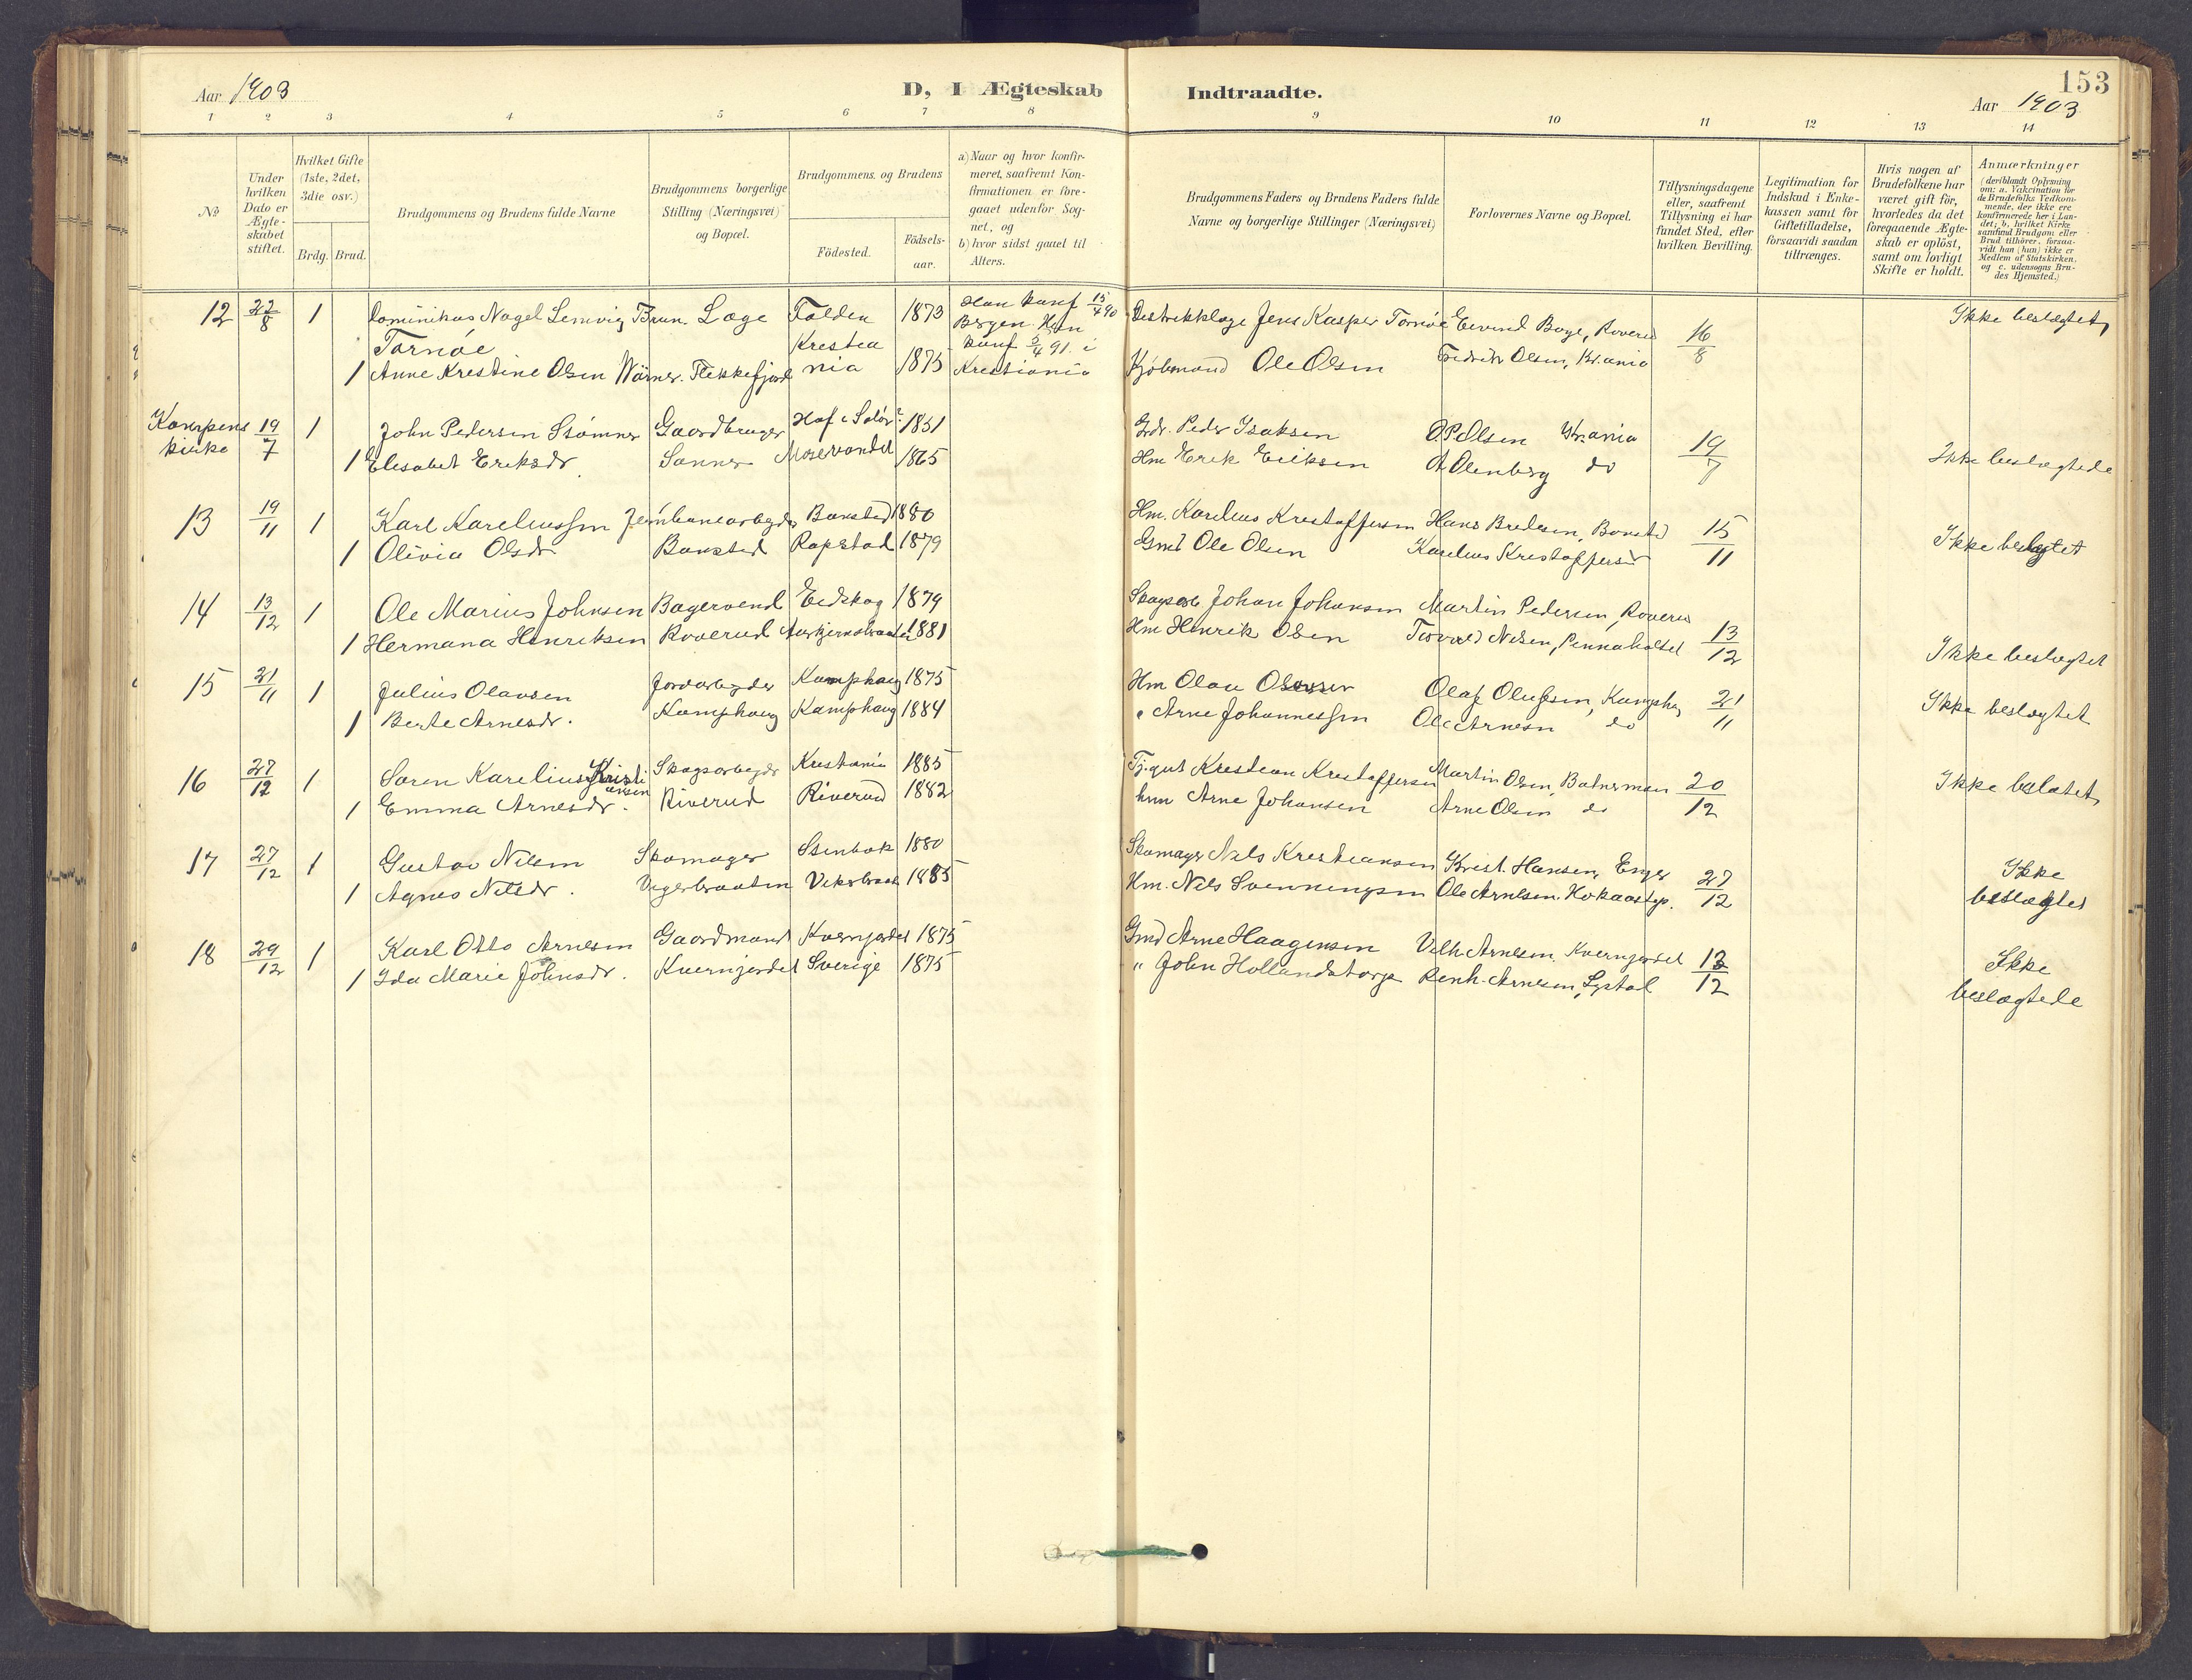 Aar 1903
D, I Ægteskab Indtraadte.
153
Aar 1903
1 2 3 4 5 6 7 8 9 10 11 12 13 14
No
Under hvilken Dato er Ægteskabet stiftet.
Hvilket Gifte (1ste, 2det, 3die osv.)
Brdg. Brud.
Brudgommens og Brudens fulde Navne
Brudgommens borgerlige Stilling (Næringsvei) og Bopæl.
Brudgommens og Brudens
Födested.
Födsels-aar.
a) Naar og hvor konfirmeret, saafremt Konfirmationen er foregaaet udenfor Sognet, og
b) hvor sidst gaaet til Alters.
Brudgommens Faders og Brudens Faders fulde Navne og borgerlige Stillinger (Næringsvei)
Forlovernes Navne og Bopæl.
Tillysningsdagene eller, saafremt Tillysning ei har fundet Sted, efter hvilken Bevilling.
Legitimation for Indskud i Enkekassen samt for Giftetilladelse, forsaavidt saadan tiltrænges.
Hvis nogen af Brudefolkene har været gift før, hvorledes da det foregaaende Ægteskab er oplöst, samt om lovligt Skifte er holdt.
Anmærkninger
(deriblandt Oplysning om: a. Vakcination for de Brudefolks Vedkommende, der ikke ere konfirmerede her i Landet; b. hvilket Kirkesamfund Brudgom eller Brud tilhører, forsaavidt han (hun) ikke er Medlem af Statskirken, og c. udensogns Brudes Hjemsted.)
12 22/8 1 Dominikus Nagel Lemvig Brun Læge Folden 1873 Han konf 15/4 90 Distriktslæge Jens Kasper Tornöe Eivind Boye, Roverud 16/8 Ikke beslægtet
Tornöe Krestia Bergen Hun konf 5/4 91 i
1 Anne Krestine Olsen Wärner Flekkefjord nia 1875 Krestiania Kjöbmand Ole Olsen Fredrik Olsen, Kr.ania
Kampens kirke 19/7 1 John Pedersen Stömner Gaardbruger Hof i Solör 1851 Gdr. Peder Isaksen O.P. Olsen Kr.ania 19/7 Ikke beslægtede
1 Elisabet Eriksdr. Sanner 1865 Hm Erik Eriksen A Olenberg do
13 19/11 1 Karl Kareliussen Jernbanearbeyder 1880 Hm. Karelius Krestoffersen 15/11 Ikke beslægtet
1 Olivia Olsdr 1879 Gmd Ole Olsen Karelius Krestoffersen
14 13/12 1 Ole Marius Johnsen Eidskog 1879 Skogsarb Johan Johansen Martin Pedersen, Roverud 13/12 Ikke beslægtet
1 Hermana Henriksen Roverud 1881 Hm Henrik Olsen Torvald Nilsen,
15 21/11 1 Julius Olausen Jordarbeyder Kamphaug 1875 Hm Olau Olaf Olufsen, Kamphaug 21/11 Ikke beslægtet
1 Berte Arnesdr. Kamphaug Kamphaug 1884 " Arne Johannessen Ole Arnesen do
16 27/12 1 Soren Karelius Kristiansen Skogsarbeyder Krestiania 1885 Tj.gut Krestian Krestoffersen Martin Olsen, 20/12 Ikke beslætet
1 Emma Arnesdr. Riverud Riverud 1882 hm Arne Johansen Arne Olsen do
17 27/12 1 Gustav Nilsen Skomager 1880 Skomager Nils Krestiansen Krest. Hansen, Enger 27/12 Ikke beslægtet
1 Agnes Nilsdr. 1885 Hm. Nils Svenningsen Ole Arnesen
18 29/12 1 Karl Otto Arnesen Gaardmand Kvernjordet 1875 Gmd Arne Haagensen Vilh. Arnesen, Kvernjordet 13/12 Ikke beslægtede
1 Ida Marie Johnsdr. Kvernjordet Sverige 1875 " John Hollandstorp Renh. Arnesen,